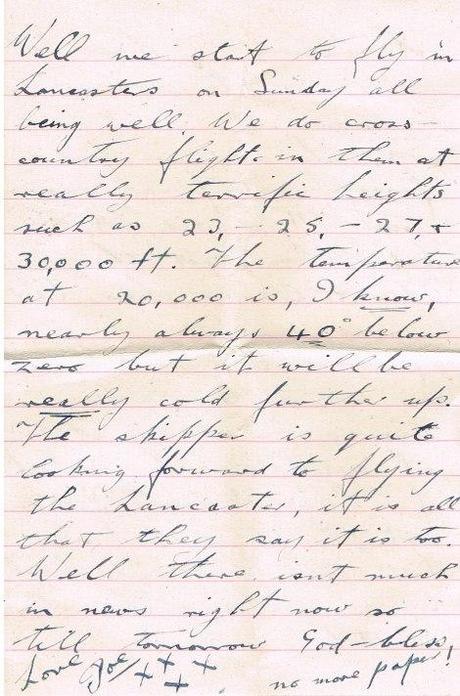 Well we start to fly in
Lancasters on Sunday all
being well. We do cross-
country flights in them at
really terrific heights
such as 23, - 25, - 27, +
30,000 ft. The temperature
at 20,000 is, I know,
nearly always 40° below
zero but it will be
really cold further up.
The skipper is quite
looking forward to flying
the Lancaster, it is all
that they say it is too.
Well there isnt much
in news right now so
till tomorrow God-bless,
Love Joe/ + + + + +
no more paper!